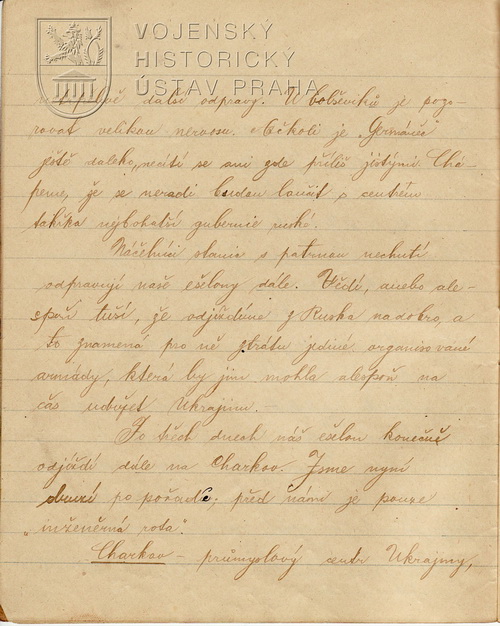 VOJENSKÝ
HISTORICKÝ
ÚSTAV PRAHA
další odpravy. U bolševiků je pozo-
rovat velikou nervosu. Ačkoli je „Germánec“
ještě daleko, necítí se ani zde příliš jistými. Chá-
peme, že se neradi budou loučit s centrem
takřka nejbohatší gubernie ruské.
Náčelníci stanic s patrnou nechutí
odpravují naše ešelony dále. Vědí, anebo ale-
spoň tuší, že odjíždíme z Ruska nadobro, a
to znamená pro ně ztrátu jediné organisované
armády, která by jim mohla alespoň na
čas udržet Ukrajinu. —
Po třech dnech náš ešelon konečně
odjíždí dále na Charkov. Jsme nyní
druzí po pořadě, před námi je pouze
„inženěrná rota“.
Charkov – průmyslový centr Ukrajiny,